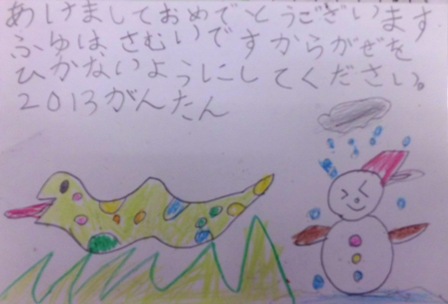 あけましておめでとうございます
ふゆは、さむいですからがぜを
ひかないようにしてください。
2013がんたん